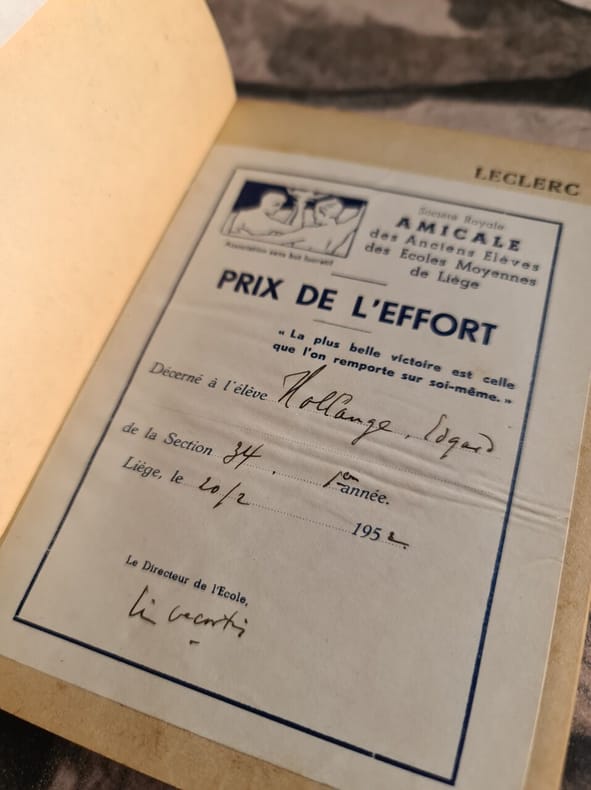 LECLERC
Société Royale
AMICALE
des Anciens Elèves
des Ecoles Moyennes
de Liège
Association sans but lucratif
PRIX DE L'EFFORT
« La plus belle victoire est celle
que l'on remporte sur soi-même. »
Décerné à l'élève Hollange, Edgard
de la Section 34. 1ère année.
Liège, le 20/2 1952.
Le Directeur de l'Ecole,